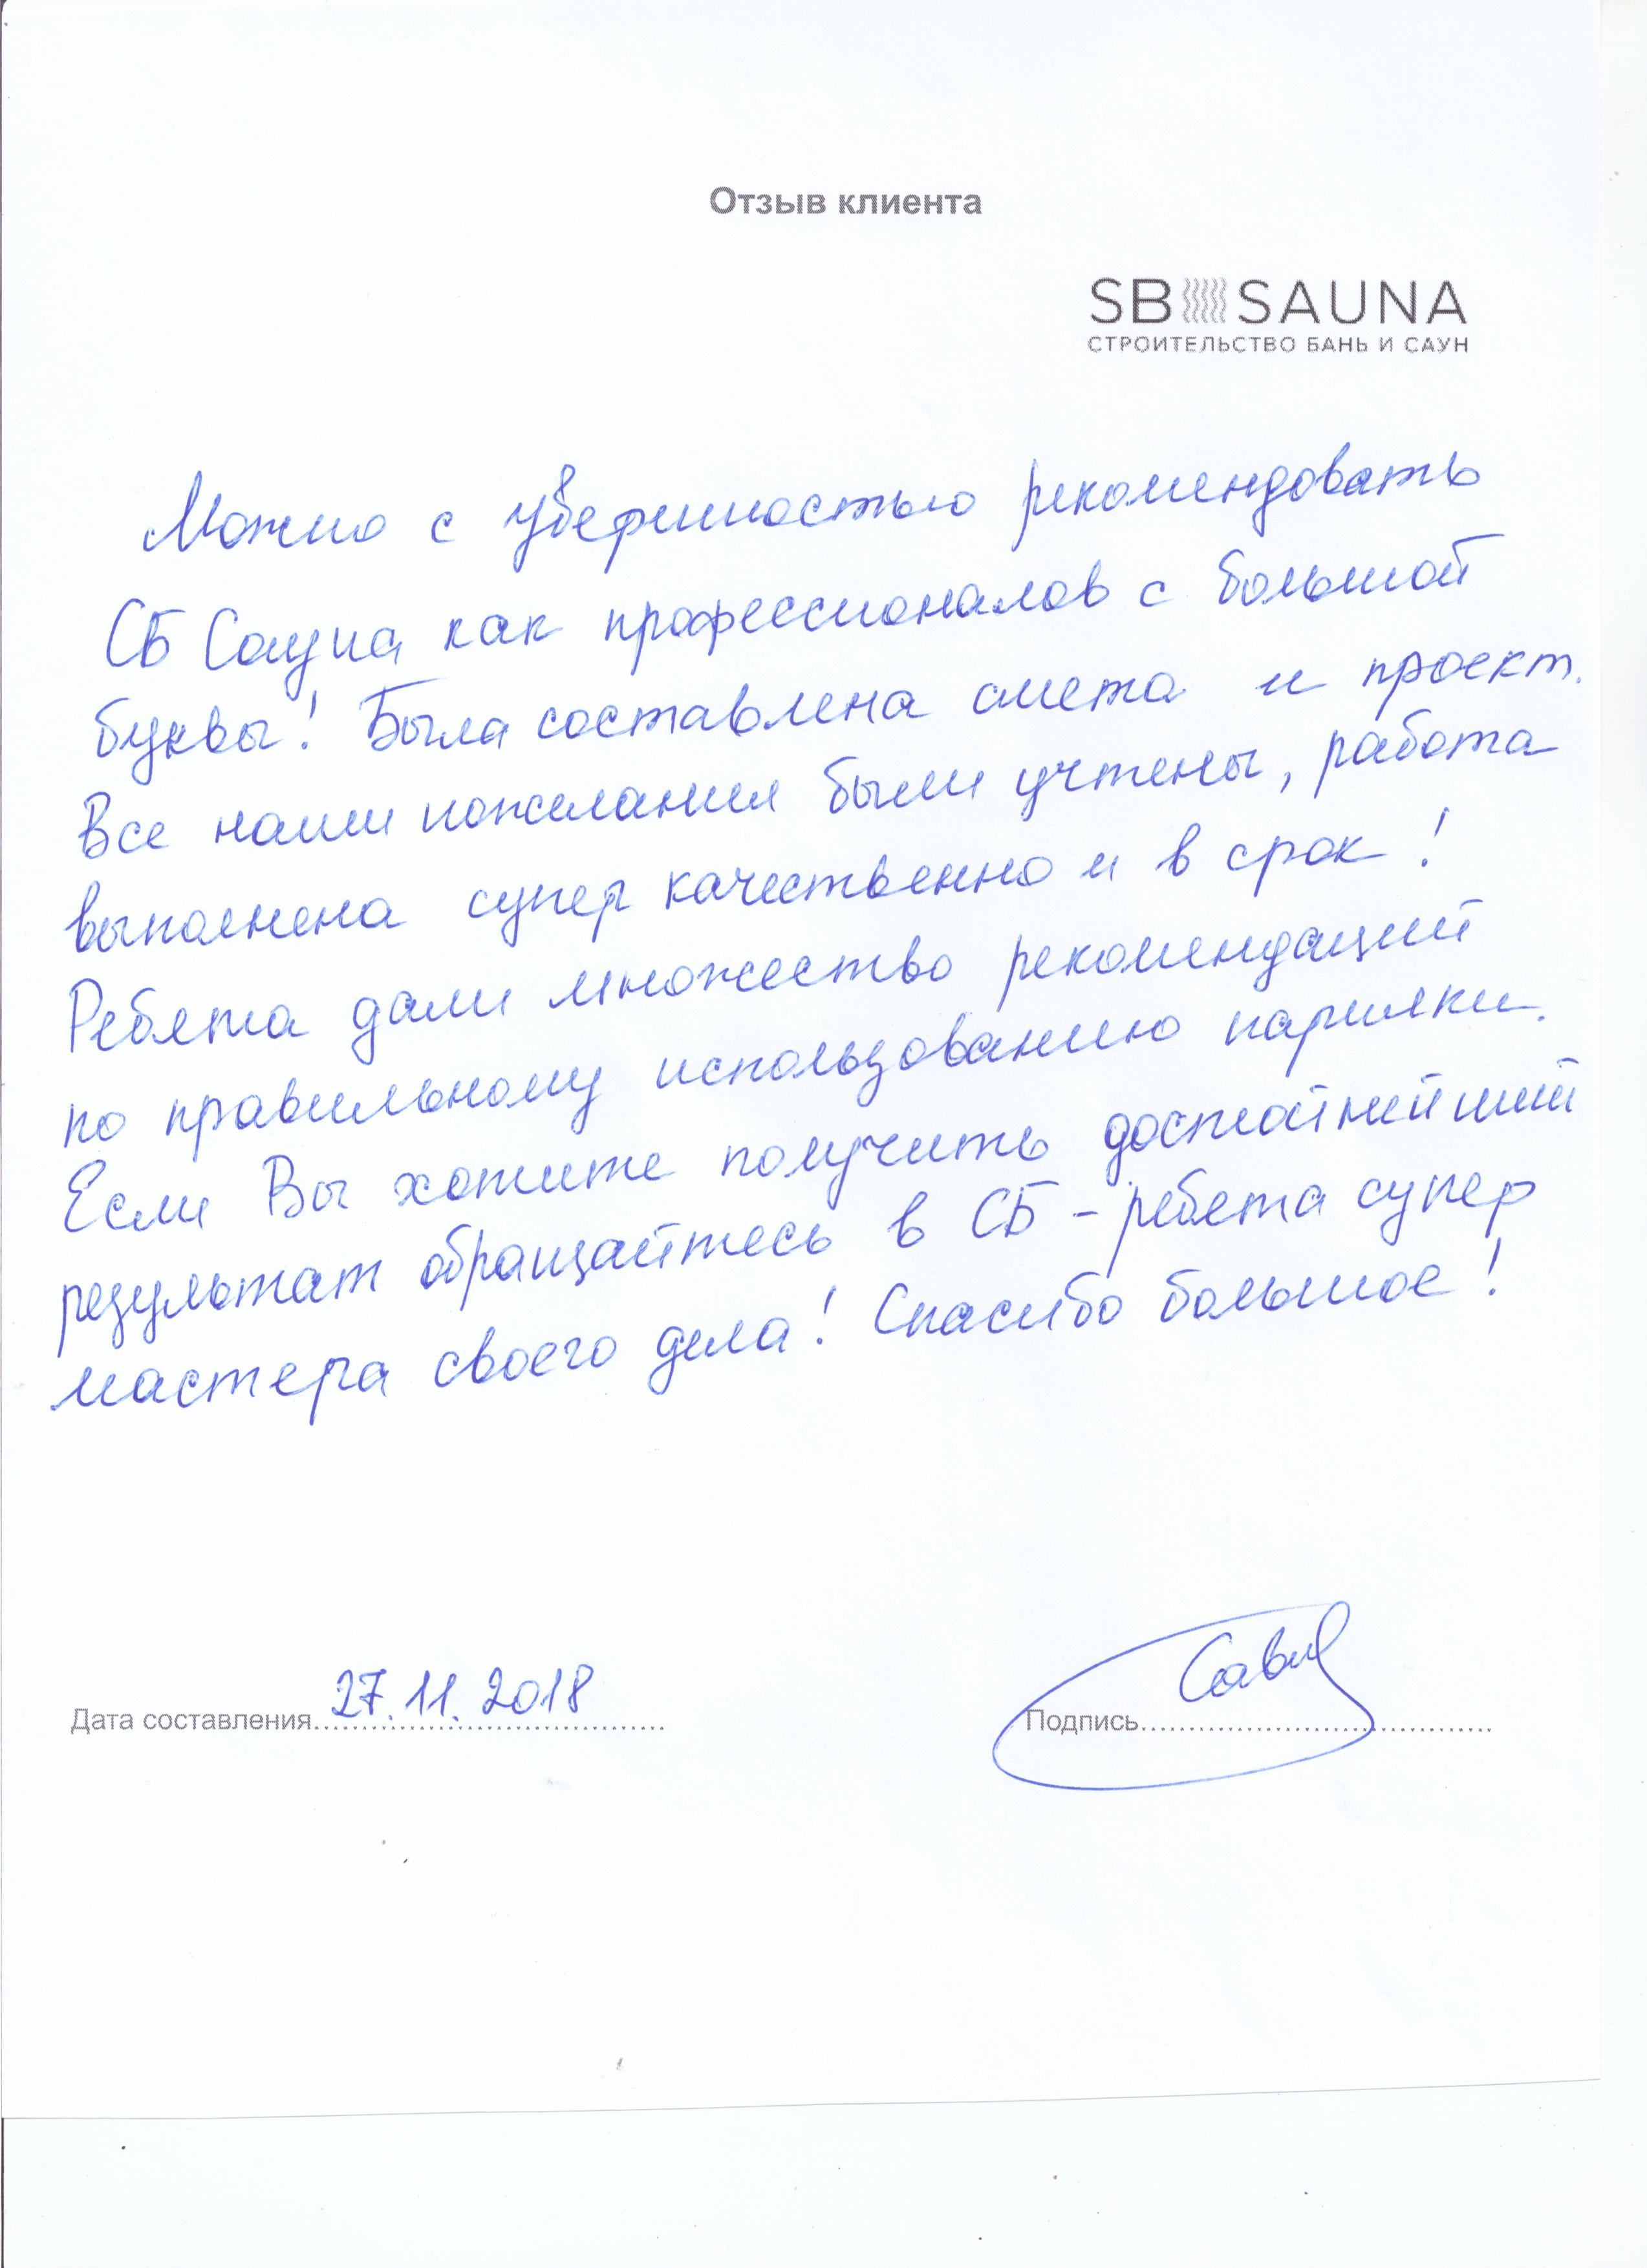 Отзыв клиента
SB SAUNA
СТРОИТЕЛЬСТВО БАНЬ И САУН
Можно с уверенностью рекомендовать
СБ Сауна как профессионалов с большой
буквы! Была составлена смета и проект.
Все наши пожелания были учтены, работа
выполнена супер качественно и в срок!
Ребята дали множество рекомендаций
по правильному использованию парилки.
Если Вы хотите получить достойнейший
результат обращайтесь в СБ - ребята супер
мастера своего дела! Спасибо большое!
Дата составления 27.11.2018
Подпись